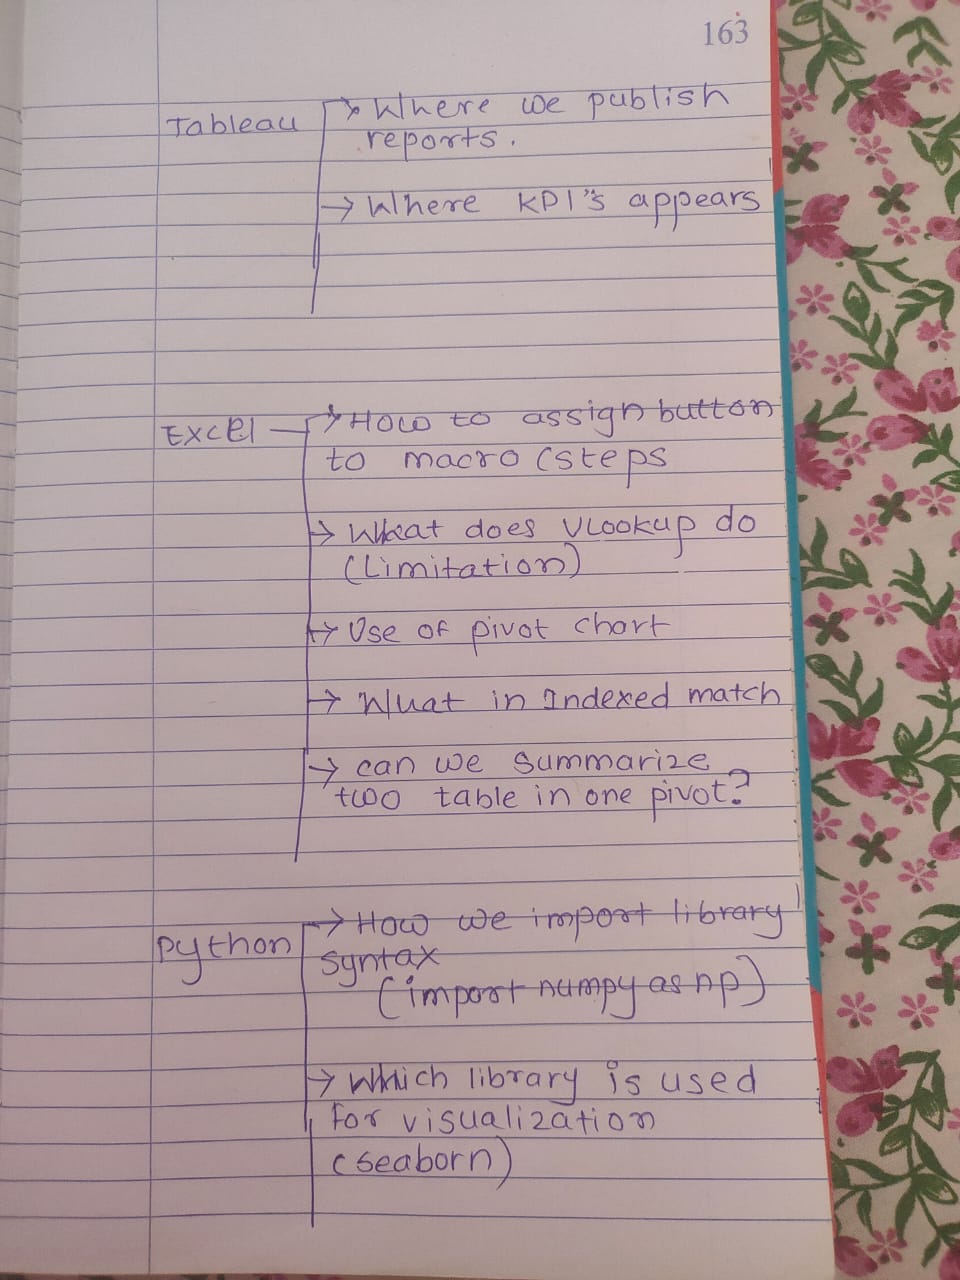 163
Tableau → Where we publish
reports.
→ Where KPI's appears
Excel → How to assign button
to macro (steps
→ What does VLookup do
(Limitation)
→ Use of pivot chart
→ What in Indexed match
→ can we summarize
two table in one pivot?
python → How we import library
syntax
(import numpy as np)
→ Which library is used
for visualization
(seaborn)